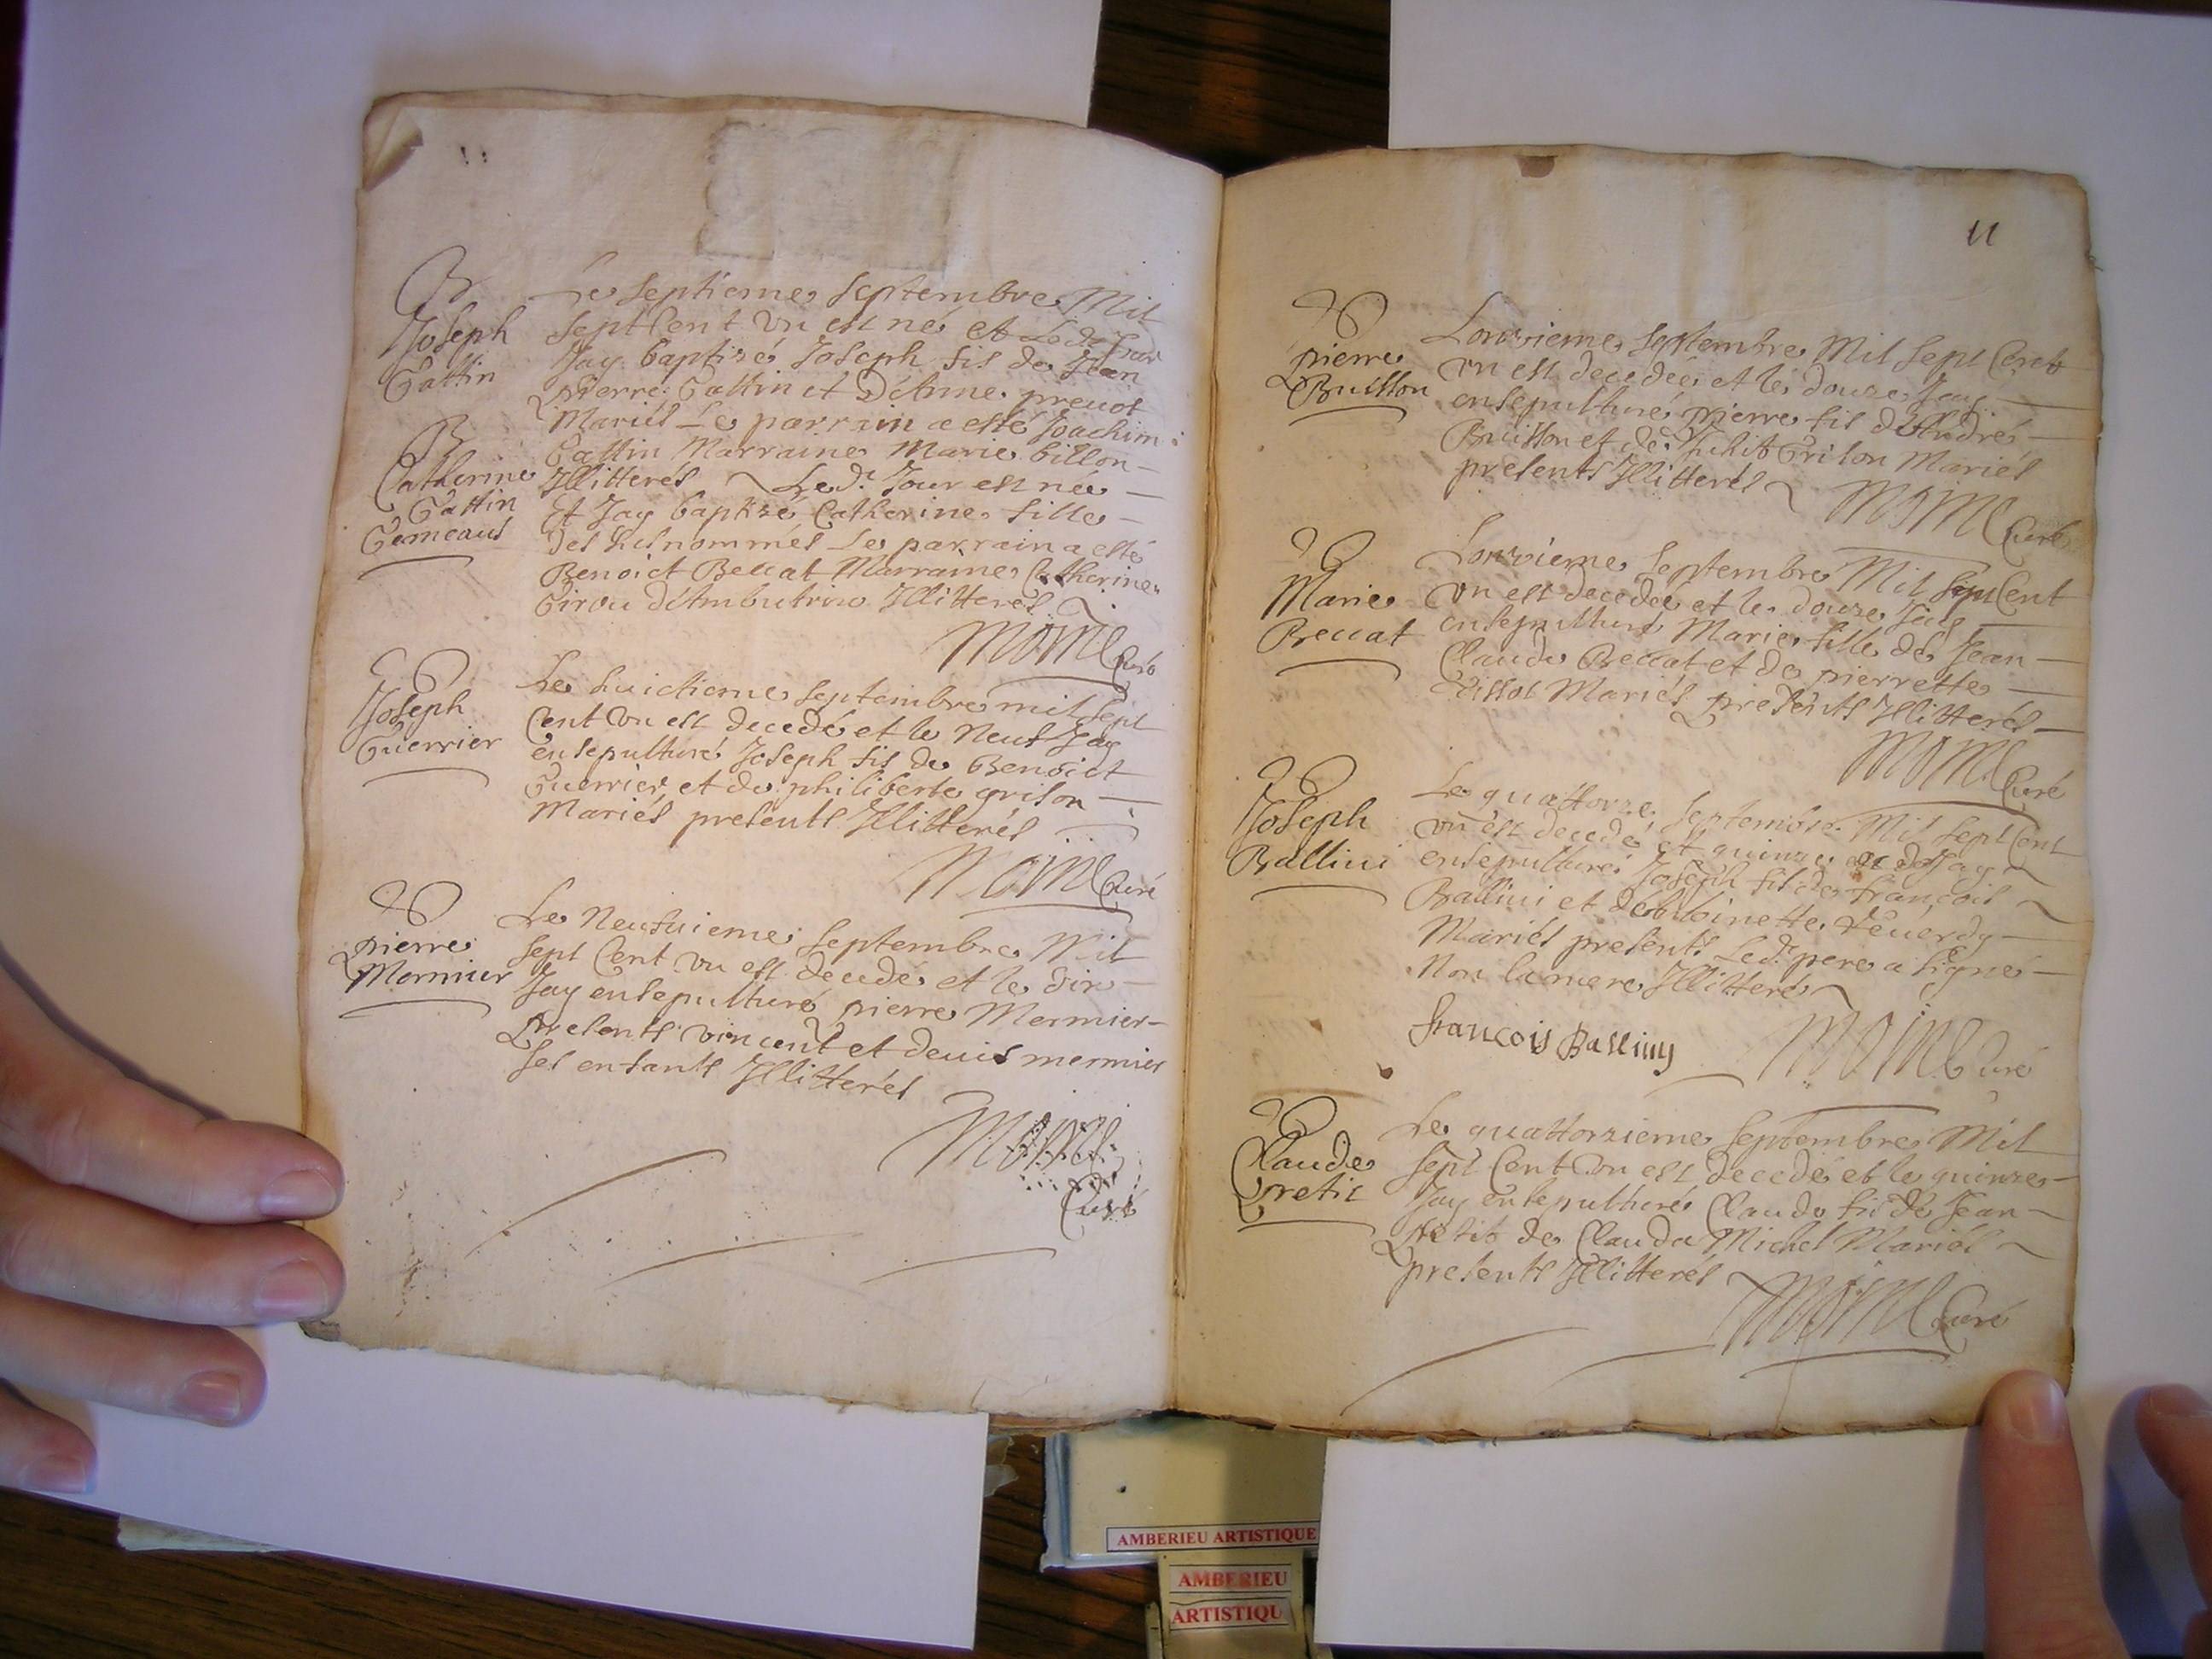 B
Joseph
Gattin
Le septieme septembre Mil
sept Cent vn est né et Led. Jour
Jay baptizé Joseph fils de Jean
pierre Gattin et d'Anne preuot
Mariés Le parrain a esté Joachim
Gattin Marraine Marie billon
Illitterés Led. Jour est nee
B
Catherine
Gattin
Gemeaus
Et Jay baptizé Catherine fille
des susnommés Le parrain a esté
Benoict Beccat Marraine Catherine
Girou d'Ambutrin Illitterés
Moine Curé
Joseph
Guerrier
Le huictieme septembre mil sept
Cent vn est decedé et le Neuf Jay
ensepulturé Joseph fils de Benoict
Guerrier et de philiberte grison
Mariés presents Illitterés
Moine Curé
pierre
Mermier
Le Neufuieme septembre Mil
sept Cent vn est decedé et le dix
Jay ensepulturé pierre Mermier
presents vincent et denis mermier
ses enfants Illitterés
Moine
Curé
11
pierre
Buisson
Lonzieme septembre Mil sept Cent
vn est decedée et le douze Jay
ensepulturé pierre fils d'André
Buisson et de Grison Mariés
presents Illitterés
Moine Curé
Marie
Beccat
Lonzieme septembre Mil sept Cent
vn est decedée et le douze Jay
ensepulturé Marie fille de Jean
Claude Beccat et de pierrette
Tissot Mariés presents Illitterés
Moine Curé
Joseph
Ballini
Le quattorze septembre Mil sept Cent
vn est decedé et quinze dud. Jay
ensepulturé Joseph fils de francois
Ballini et d'Antoinette
Mariés presents Led. pere a signé
Non la mere Illitteré
francois Balliny
Moine Curé
Claude
petit
Le quattorzieme septembre Mil
sept Cent vn est decedé et le quinze
Jay ensepulturé Claude fils de Jean
petit de Clauda Michel Mariés
presents Illitterés
Moine Curé
AMBERIEU ARTISTIQUE
AMBERIEU
ARTISTIQU